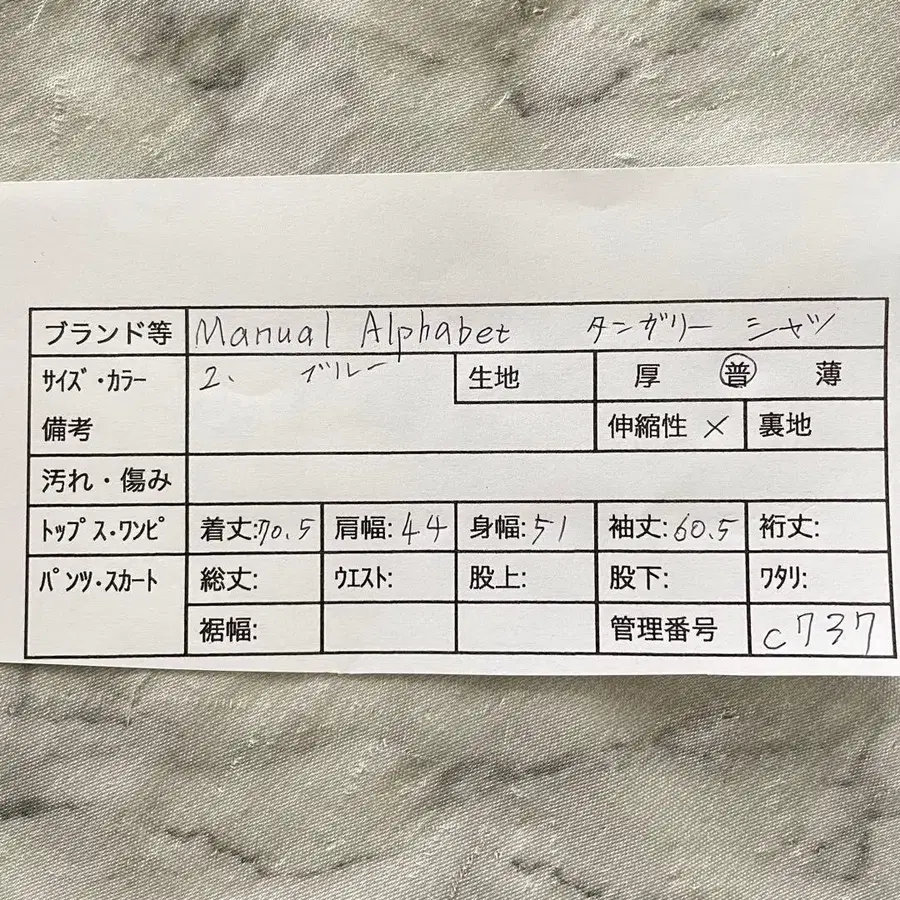 ブランド等 Manual Alphabet タンガリー シャツ
サイズ・カラー 2、 ブルー 生地 厚 普 薄
備考 伸縮性 × 裏地
汚れ・傷み
トップス・ワンピ 着丈:70.5 肩幅:44 身幅:51 袖丈:60.5 裄丈:
パンツ・スカート 総丈: ウエスト: 股上: 股下: ワタリ:
裾幅: 管理番号 c737